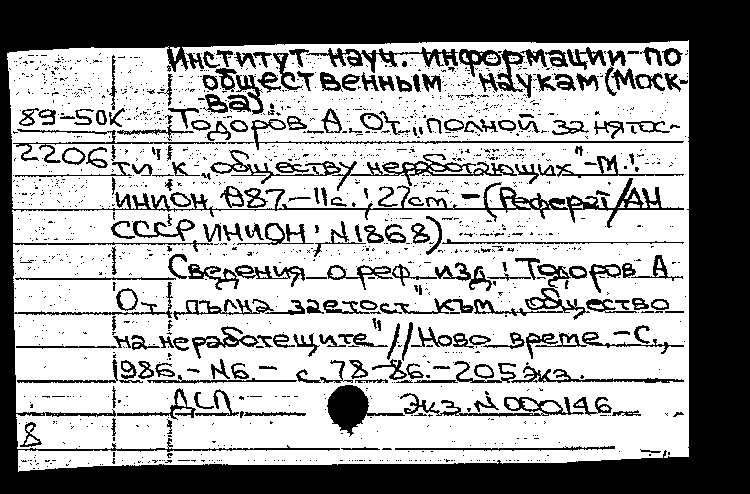 Институт науч. информации по
общественным наукам (Моск-
ва).
89-50К Тодоров А. От „полной занятос-
2206 ти" к „обществу неработающих".-М.:
ИНИОН, 1987.-11с.; 27см. - (Реферат/АН
СССР, ИНИОН; N1868).
Сведения о реф. изд.: Тодоров А.
От „пълна заетост" към „общество
на неработещите" // Ново време. -С.,
1986.- N6.- с. 78-86.-205экз.
ДСП. Экз. N 000146
8